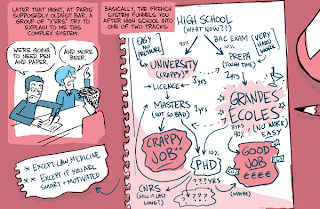 LATER THAT NIGHT, AT PARIS'
SUPPOSEDLY OLDEST BAR, A
GROUP OF "X'ERS" TRY TO
EXPLAIN TO ME THIS
COMPLEX SYSTEM.
WE'RE GOING
TO NEED PEN
AND PAPER.
AND MORE
BEER.
* EXCEPT LAW, MEDICINE
** EXCEPT IF YOU ARE
SMART + MOTIVATED
BASICALLY, THE FRENCH
SYSTEM FUNNELS YOU
AFTER HIGH SCHOOL INTO
ONE OF TWO TRACKS.
HIGH SCHOOL
(WHAT NOW??)
EASY
NO
PRESSURE
90%
BAC EXAM
10%
VERY
HARD
WORK
UNIVERSITY
(CRAPPY)*
PREPA
(TOUGH TIME)
LICENCE
MASTERS
(NOT SO BAD)
GRANDES
ECOLES
(NO WORK)
EASY
CRAPPY
JOB**
10%
PHD
GOOD
JOB
€€€€
CNRS
(WILL IT LAST
LONG?)
????
YRS
(MAYBE)